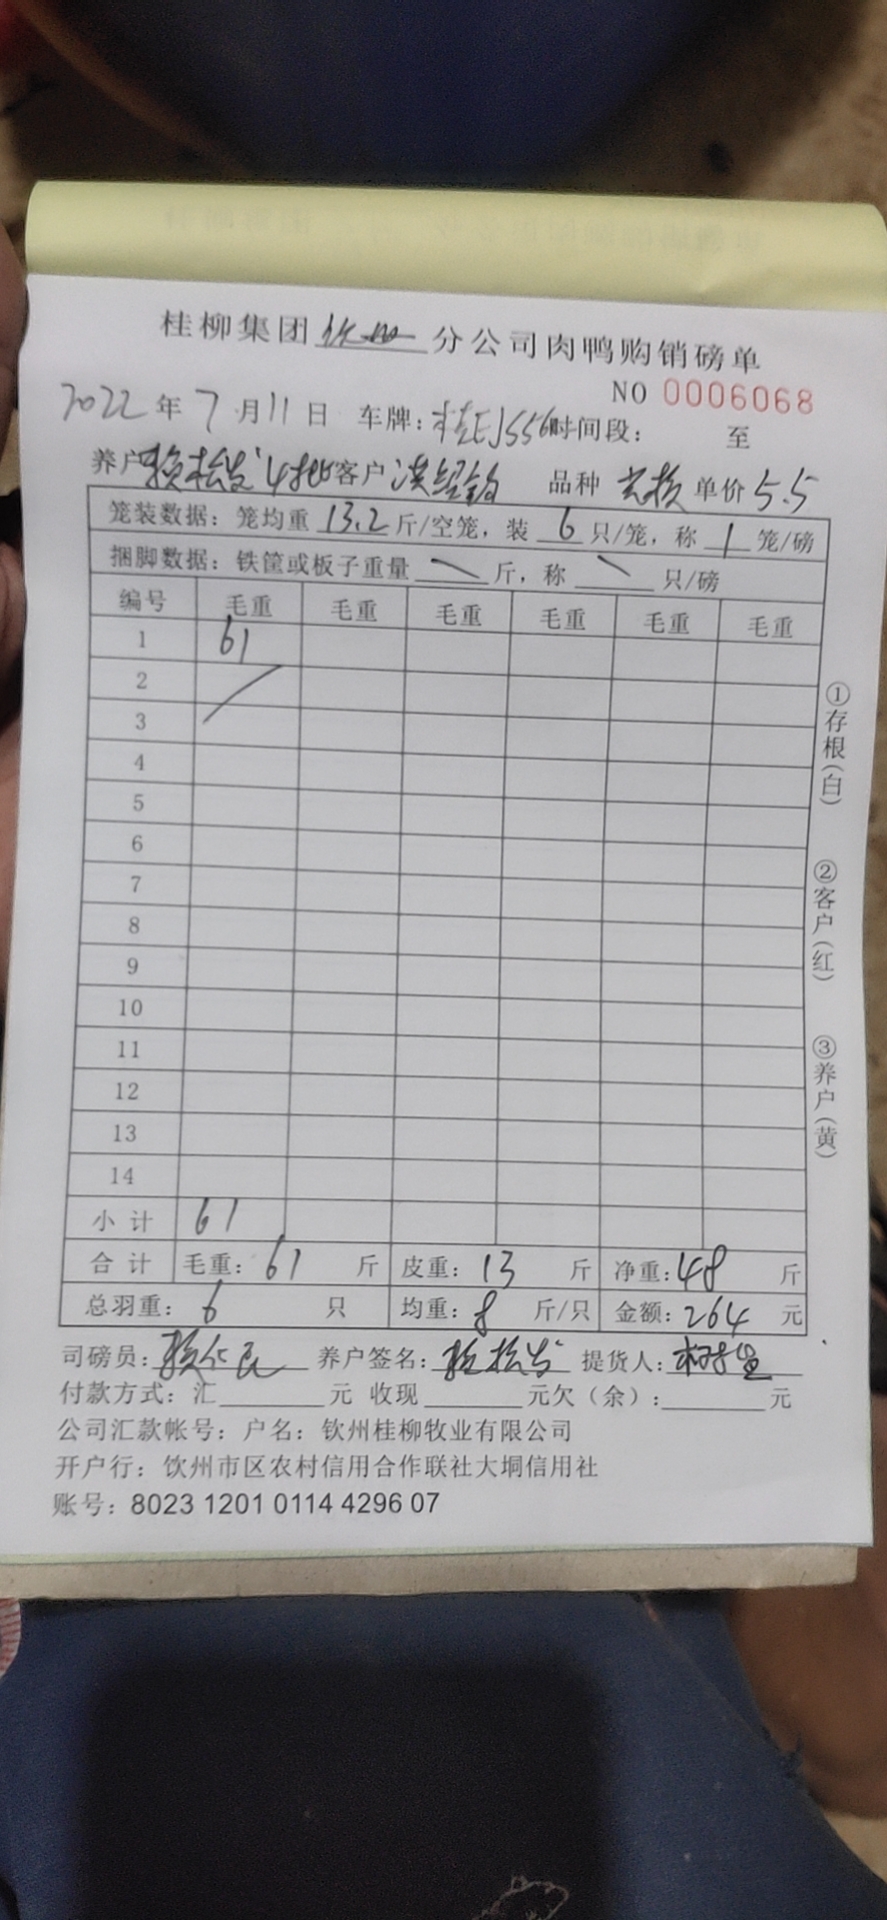 桂柳集团 钦州 分公司肉鸭购销磅单
NO 0006068
2022 年 7 月 11 日 车牌：桂EJS556 时间段： 至
养户 赖松发 4批 客户 洪绍钦 品种 单价 5.5
笼装数据：笼均重 13.2 斤/空笼，装 6 只/笼，称 1 笼/磅
捆脚数据：铁筐或板子重量 斤，称 只/磅
编号 毛重 毛重 毛重 毛重 毛重 毛重
1 61
2
3
4
5
6
7
8
9
10
11
12
13
14
小计 61
合计 毛重：61 斤 皮重：13 斤 净重：48 斤
总羽重：6 只 均重：8 斤/只 金额：264 元
司磅员： 养户签名：赖松发 提货人：
付款方式：汇 元 收现 元欠（余）： 元
公司汇款帐号：户名：钦州桂柳牧业有限公司
开户行：饮州市区农村信用合作联社大垌信用社
账号：8023 1201 0114 4296 07
①存根（白）
②客户（红）
③养户（黄）